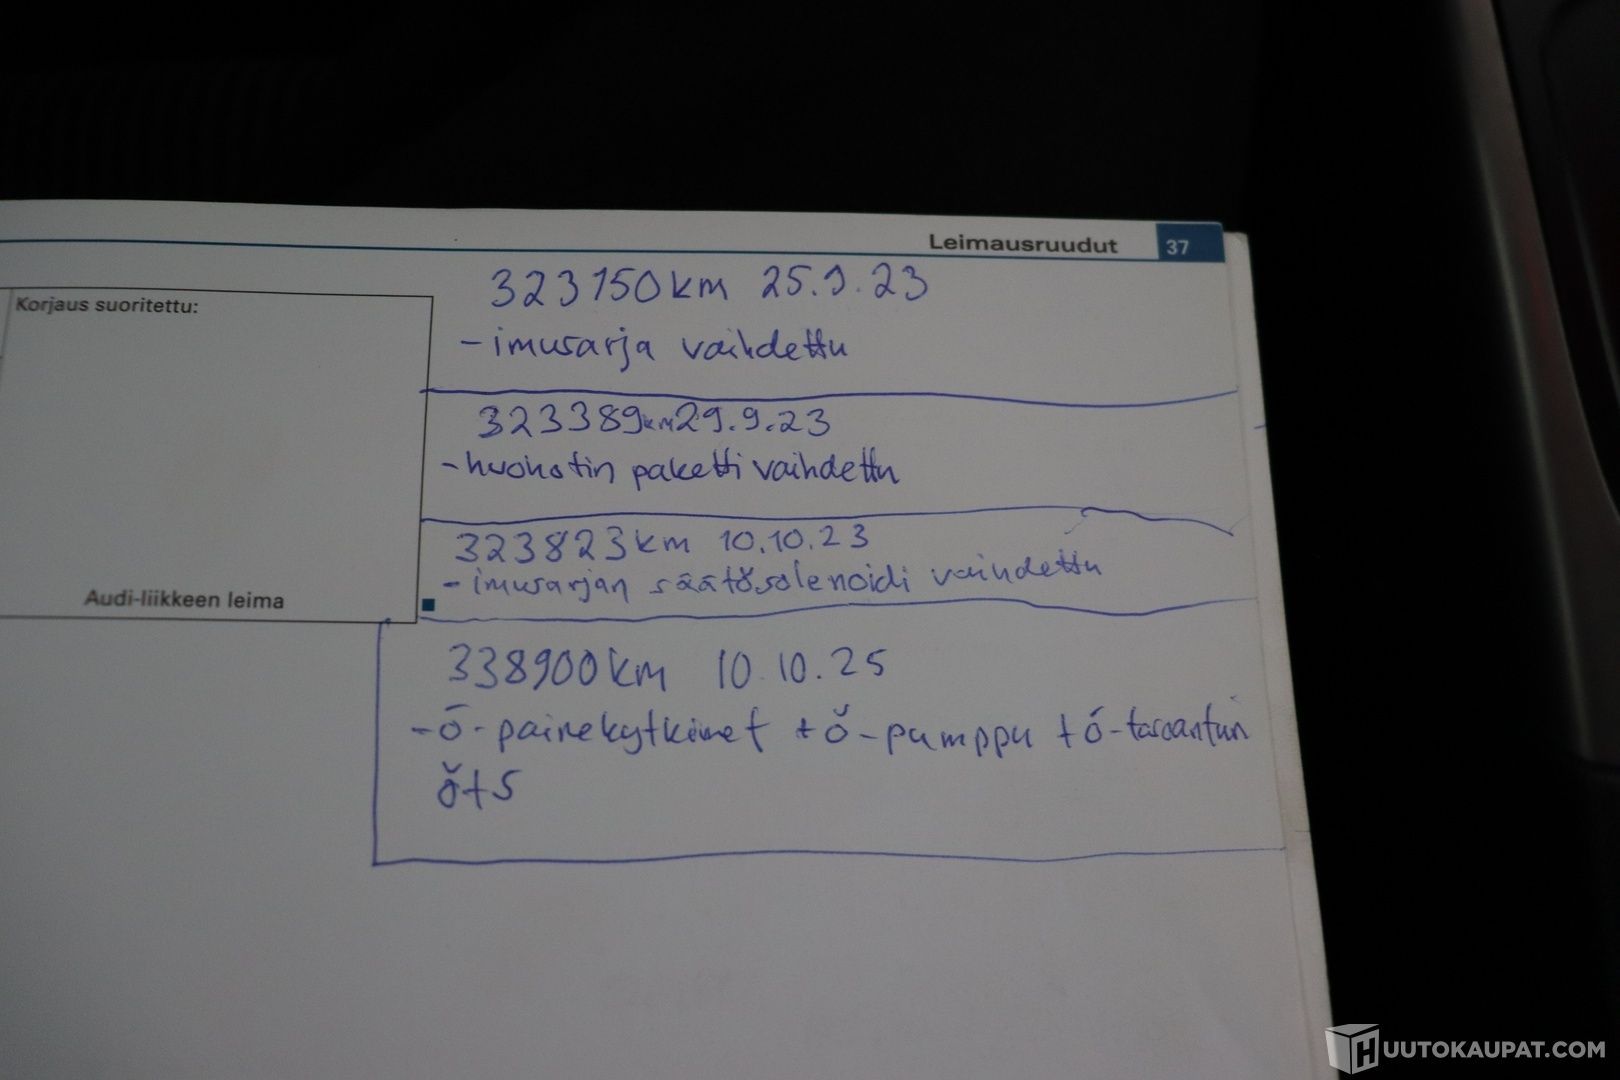 Leimausruudut 37
Korjaus suoritettu:
Audi-liikkeen leima
323150km 25.9.23
-imusarja vaihdettu
323389km 29.9.23
-huohotin paketti vaihdettu
323823km 10.10.23
-imusarjan säätösolenoidi vaihdettu
338900km 10.10.25
-ö-painekytkimet +ö-pumppu +ö-tasoanturi
ö+s
HUUTOKAUPAT.COM